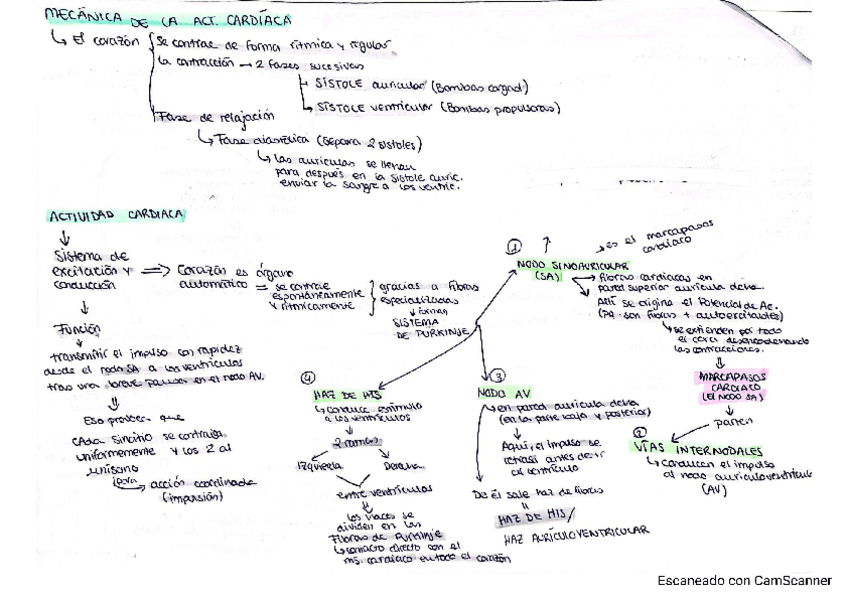 MECÁNICA DE LA ACT. CARDÍACA
↳ El corazón
Se contrae de forma rítmica y regular
la contracción → 2 fases sucesivas
SÍSTOLE auricular (Bombas cargad)
SÍSTOLE ventricular (Bombas propulsoras)
Fase de relajación
↳ Fase diastólica (separa 2 sístoles)
↳ Las aurículas se llenan
para después en la sístole auric.
enviar la sangre a los ventric.
ACTIVIDAD CARDIACA
Sistema de
excitación y
conducción
⇒ Corazón es órgano
automático = se contrae
espontáneamente
y rítmicamente
gracias a fibras
especializadas
↓ forman
SISTEMA
DE PURKINJE
Función
transmitir el impulso con rapidez
desde el nodo SA a los ventrículos
tras una breve pausa en el nodo AV.
Eso provoca que
cada sincitio se contraiga
uniformemente y los 2 al
unísono
para → acción coordinada
(impulsión)
①
→ es el marcapasos
cardíaco
NODO SINOAURICULAR
(SA)
→ fibras cardiacas en
pared superior aurícula dcha.
Allí se origina el Potencial de Ac.
(PQ son fibras + autoexcitables)
↳ se extienden por todo
el desencadenando
las contracciones.
MARCAPASOS
CARDIACO
(El NODO SA)
↓ parten
②
VÍAS INTERNODALES
↳ conducen el impulso
al nodo auriculoventricular
(AV)
③
NODO AV
↳ en pared aurícula dcha
(en la parte baja y posterior)
Aquí, el impulso se
retrasa antes de ir
al ventrículo
De él sale haz de fibras
HAZ DE HIS/
HAZ AURÍCULOVENTRICULAR
④
HAZ DE HIS
↳ conduce estímulo
a los ventrículos
2 ramas
Izquierda
Derecha
entre ventrículos
los haces se
dividen en las
Fibras de Purkinje
↳ contacto directo con el
ms. cardiaco en todo el corazón
Escaneado con CamScanner